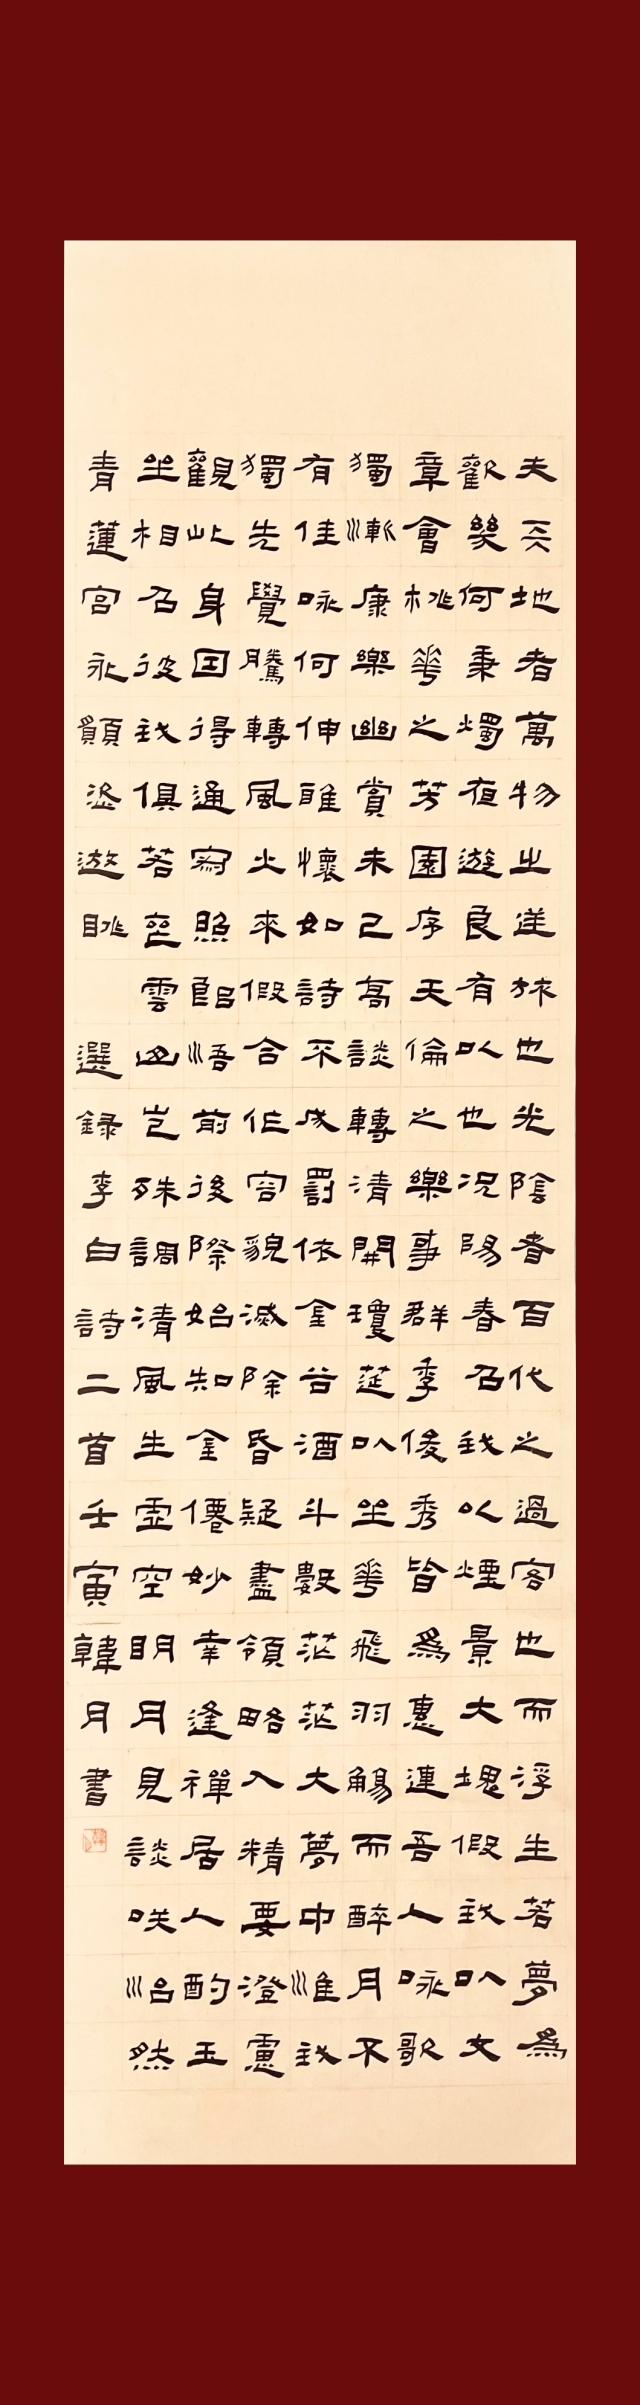 夫天地者萬物之逆旅也光陰者百代之過客也而浮生若夢為
歡幾何秉燭夜遊良有以也況陽春召我以煙景大塊假我以文
章會桃華之芳園序天倫之樂事群季俊秀皆為惠連吾人咏歌
獨慚康樂幽賞未已高談轉清開瓊筵以坐華飛羽觴而醉月不
有佳咏何伸雅懷如詩不成罰依金谷酒斗數茫茫大夢中惟我
獨先覺騰轉風火來假合作容貌滅除昏疑盡領略入精要澄慮
觀此身因得通寂照朗悟前後際始知金僊妙幸逢禪居人酌玉
坐相召彼我俱若喪雲山豈殊調清風生虛空明月見談笑怡然
青蓮宮永願恣遊眺 選錄李白詩二首壬寅韓月書